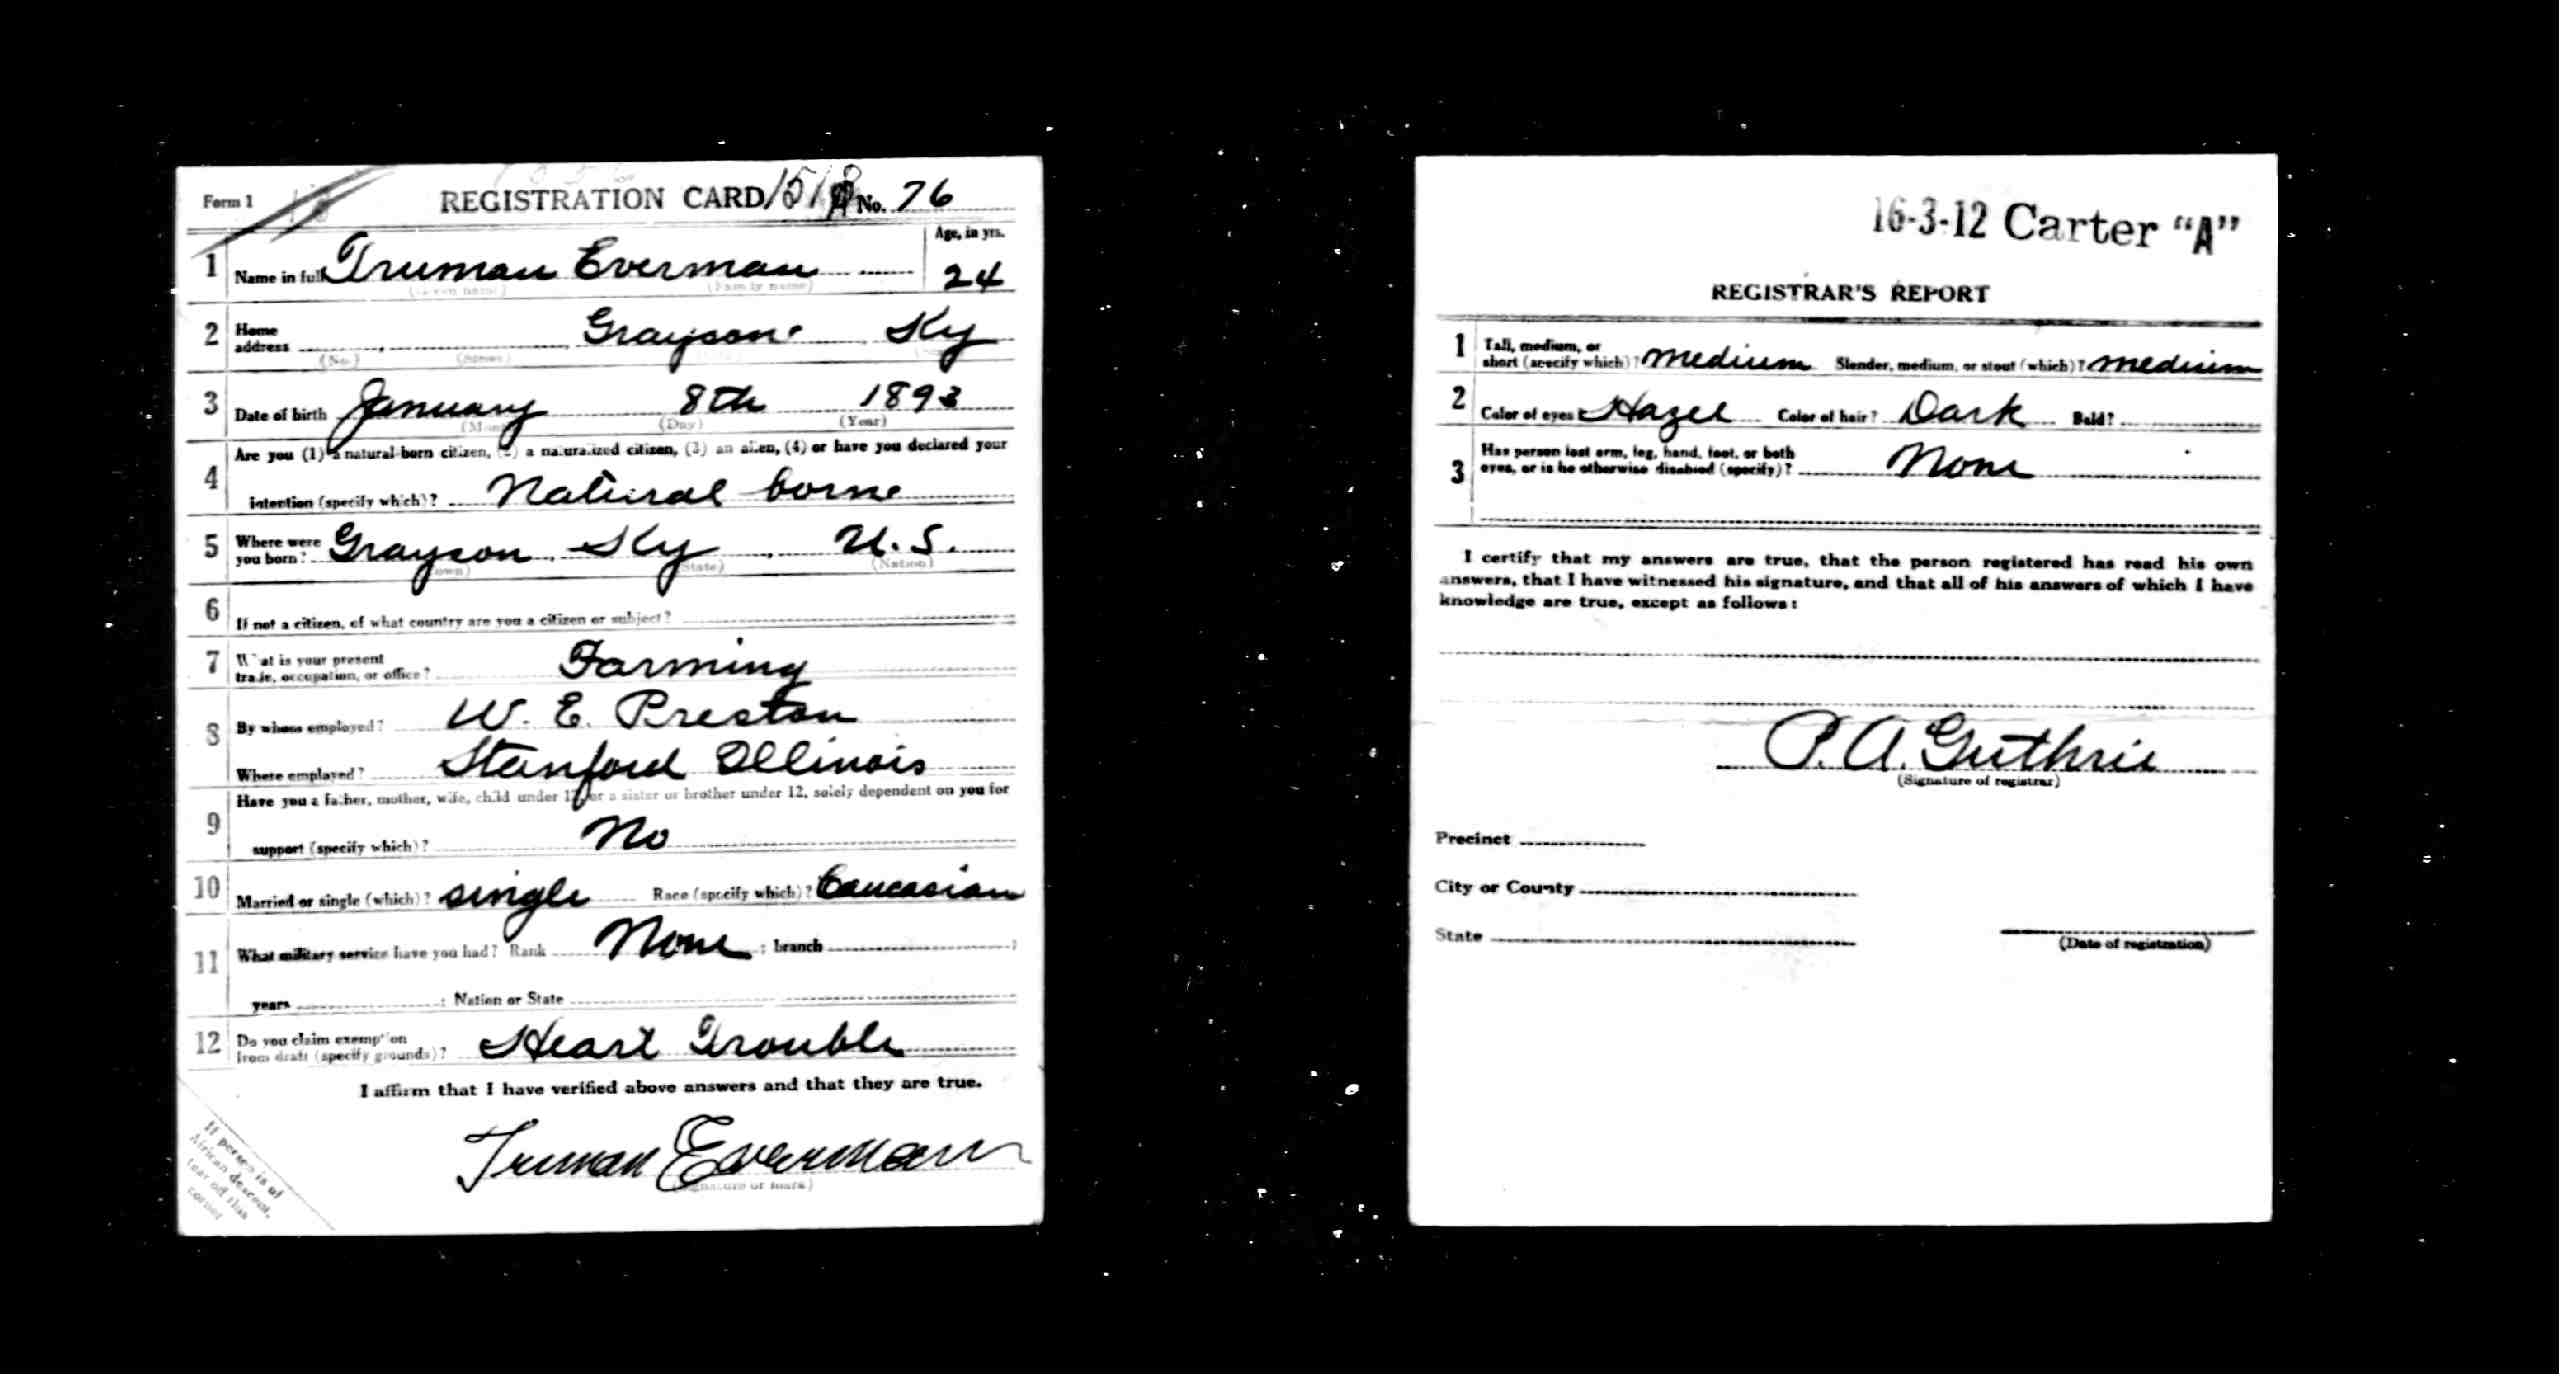 Form 1
REGISTRATION CARD No. 76
Age, in yrs.
1 Name in full Truman Everman 24
(Given name) (Family name)
2 Home address Grayson Ky
(No.) (Street)
3 Date of birth January 8th 1893
(Month) (Day) (Year)
4 Are you (1) a natural-born citizen, (2) a naturalized citizen, (3) an alien, (4) or have you declared your
intention (specify which)? Natural borne
5 Where were you born? Grayson Ky U.S.
(Town) (State) (Nation)
6 If not a citizen, of what country are you a citizen or subject?
7 What is your present
trade, occupation, or office? Farming
8 By whom employed? W. E. Preston
Where employed? Stanford Illinois
9 Have you a father, mother, wife, child under 12, or a sister or brother under 12, solely dependent on you for
support (specify which)? No
10 Married or single (which)? single Race (specify which)? Caucasian
11 What military service have you had? Rank None ; branch ;
years ; Nation or State
12 Do you claim exemption
from draft (specify grounds)? Heart Trouble
I affirm that I have verified above answers and that they are true.
Truman Everman
(Signature or mark)
If person is of
African descent,
tear off this
corner
16-3-12 Carter "A"
REGISTRAR'S REPORT
1 Tall, medium, or
short (specify which)? medium Slender, medium, or stout (which)? medium
2 Color of eyes? Hazel Color of hair? Dark Bald?
3 Has person lost arm, leg, hand, foot, or both
eyes, or is he otherwise disabled (specify)? None
I certify that my answers are true, that the person registered has read his own
answers, that I have witnessed his signature, and that all of his answers of which I have
knowledge are true, except as follows:
P. A. Guthrie
(Signature of registrar)
Precinct
City or County
State
(Date of registration)